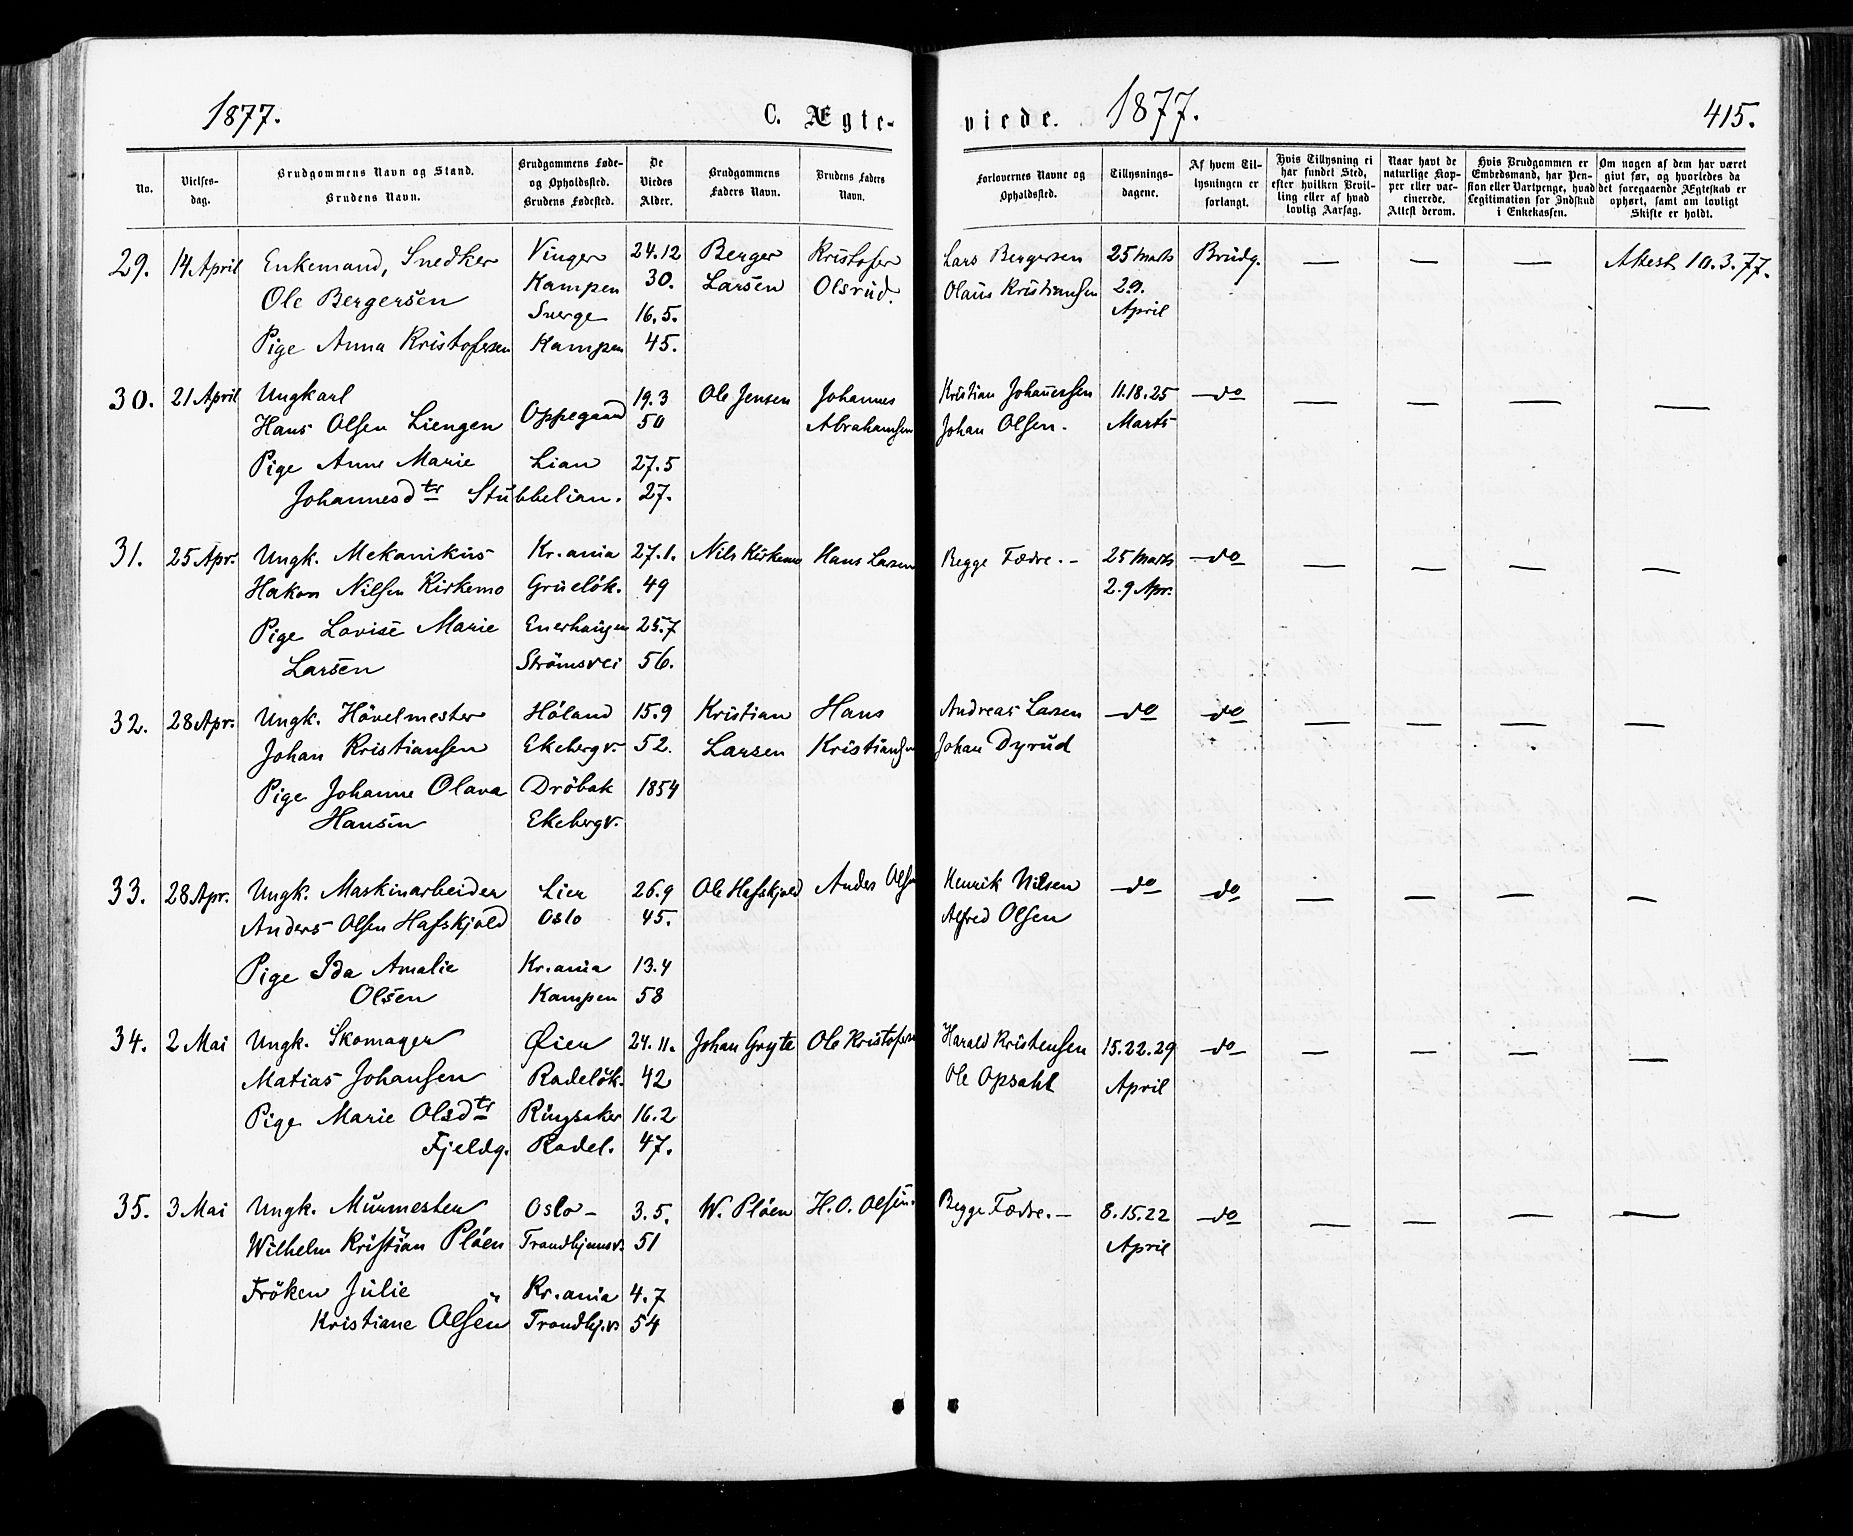 1877. C. Ægte- viede. 1877. 415.
No.
Vielses-dag.
Brudgommens Navn og Stand.
Brudens Navn.
Brudgommens Føde- og Opholdssted.
Brudens Fødested.
De Viedes Alder.
Brudgommens Faders Navn.
Brudens Faders Navn.
Forlovernes Navne og Opholdssted.
Tillysnings-dagene.
Af hvem Til-lysningen er forlangt.
Hvis Tillysning ei har fundet Sted, efter hvilken Bevil-ling eller af hvad lovlig Aarsag.
Naar havt de naturlige Kop-per eller vac-cinerede. Attest derom.
Hvis Brudgommen er Embedsmand, har Pen-sion eller Vartpenge, hvad Legitimation for Indskud i Enkekassen.
Om nogen af dem har været givt før, og hvorledes da det foregaaende Ægteskab er ophørt, samt om lovligt Skifte er holdt.
29. 14 April Enkemand, Snedker Vinger 24.12 Berger Kristofer Lars Bergersen 25 Marts Brudg. — — — Attest 10.3.77.
Ole Bergersen Kampen 30. Larsen Olsrud. Olaus Kristiansen 2.9.
Sverge 16.5. April
Pige Anna Kristofersen Kampen 45.
30. 21 April Ungkarl 19.3 Ole Jensen Johannes Kristian Johanessen 11.18.25 do — — — —
Hans Olsen Liengen Oppegaard 50 Abrahamsen Johan Olsen. Marts
Pige Anne Marie Lian 27.5
Johannesdtr Stubbelian. 27.
31. 25 Apr. Ungk. Mekanikus Kr.ania 27.1. Nils Kirkemo Hans Larsen Begge Fædre. - 25 Marts do — — — —
Hakon Nilsen Kirkemo Grueløk. 49 2.9 Apr.
Pige Lovise Marie Enerhaugen 25.7
Larsen Strömsvei 56.
32. 28 Apr. Ungk. Hövelmester Höland 15.9 Kristian Hans Andreas Larsen do do — — — —
Johan Kristiansen Ekebergv. 52. Larsen Kristiansen Johan Dyrud
Pige Johanne Olava Dröbak 1854
Hansen Ekebergv.
33. 28 Apr. Ungk. Maskinarbeider Lier 26.9 Ole Hafskjold Anders Olsen Henrik Nilsen do do — — — —
Anders Olsen Hafskjold Oslo 45. Alfred Olsen
Pige Ida Amalie Kr.ania 13.4
Olsen Kampen 58
34. 2 Mai Ungk. Skomager Øier 24.11. Johan Gryte Ole Kristofersen Harald Kristensen 15.22.29 do — — — —
Matias Johansen Radeløk. 42 Ole Opsahl April
Pige Marie Olsdtr Ringsaker 16.2
Fjeldg. Radel. 47.
35. 3 Mai Ungk. Murmester Oslo - 3.5. W. Plöen H. O. Olsen. Begge Fædre. - 8.15.22 do — — — —
Wilhelm Kristian Plöen Trondhjemsv. 51 April
Fröken Julie Kr.ania 4.7
Kristiane Olsen Trondhj.v. 54